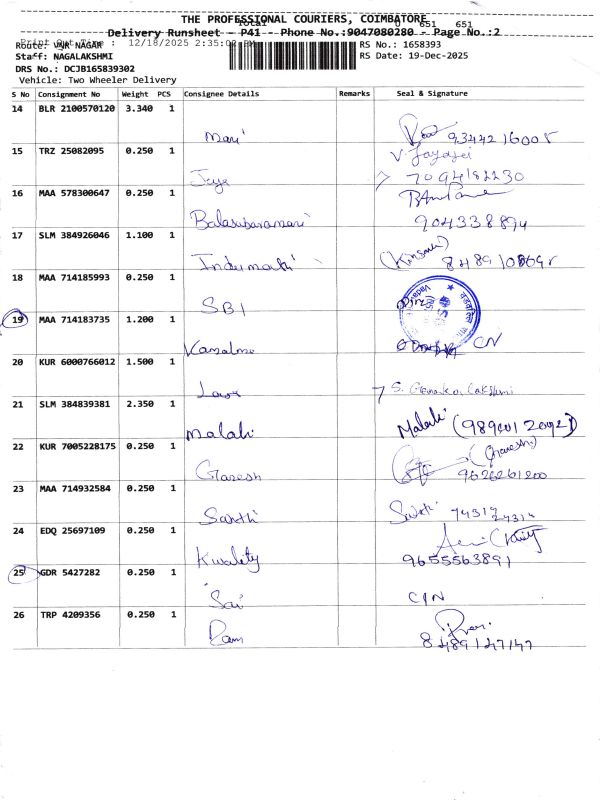 THE PROFESSIONAL COURIERS, COIMBATORE
Total 0 651 651
Delivery Runsheet - P41 Phone No.:9047080280 - Page No.:2
Print Out Time : 12/18/2025 2:35:02 PM
Route: VNR NAGAR RS No.: 1658393
Staff: NAGALAKSHMI RS Date: 19-Dec-2025
DRS No.: DCJB165839302
Vehicle: Two Wheeler Delivery
S No Consignment No Weight PCS Consignee Details Remarks Seal & Signature
14 BLR 2100570120 3.340 1
Mari 9344216005
15 TRZ 25082095 0.250 1
Jaya 7094182230
16 MAA 578300647 0.250 1
Balasubaramani
17 SLM 384926046 1.100 1
Indumathi
18 MAA 714185993 0.250 1
SBI
19 MAA 714183735 1.200 1
CN
20 KUR 6000766012 1.500 1
21 SLM 384839381 2.350 1
Malathi
22 KUR 7005228175 0.250 1
Ganesh (Ganesh) 9626261200
23 MAA 714932584 0.250 1
Santhi
24 EDQ 25697109 0.250 1
Kwality 9655563891
25 GDR 5427282 0.250 1
Sai C/N
26 TRP 4209356 0.250 1
Ram 8489147147